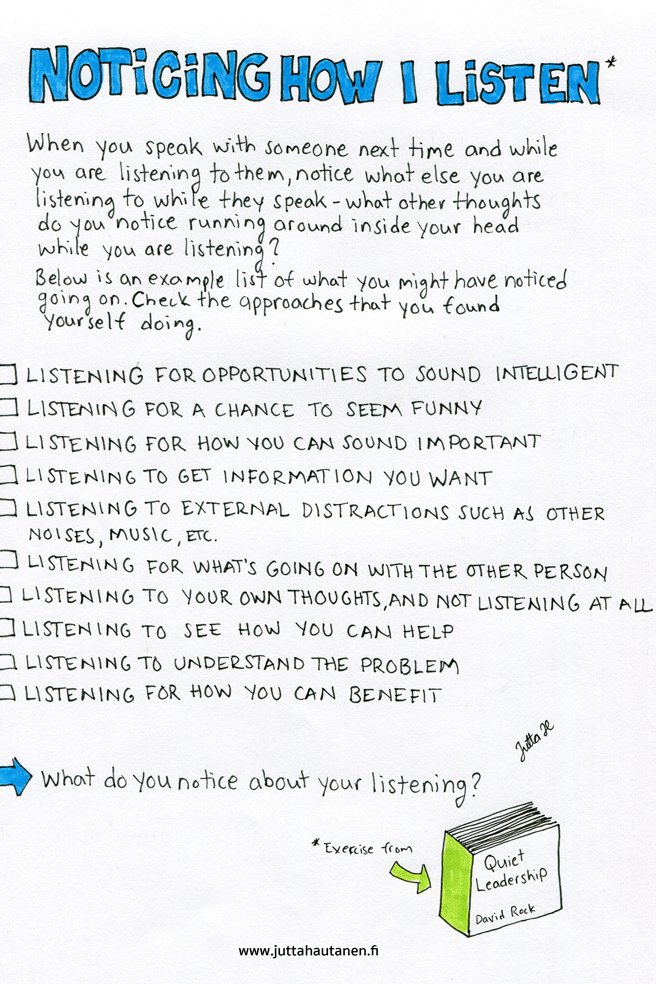 NOTiCiNG HOW I LiSTEN*
When you speak with someone next time and while
you are listening to them, notice what else you are
listening to while they speak - what other thoughts
do you notice running around inside your head
while you are listening?
Below is an example list of what you might have noticed
going on. Check the approaches that you found
yourself doing.
LISTENING FOR OPPORTUNITIES TO SOUND INTELLIGENT
LISTENING FOR A CHANCE TO SEEM FUNNY
LISTENING FOR HOW YOU CAN SOUND IMPORTANT
LISTENING TO GET INFORMATION YOU WANT
LISTENING TO EXTERNAL DISTRACTIONS SUCH AS OTHER
NOISES, MUSIC, ETC.
LISTENING FOR WHAT'S GOING ON WITH THE OTHER PERSON
LISTENING TO YOUR OWN THOUGHTS, AND NOT LISTENING AT ALL
LISTENING TO SEE HOW YOU CAN HELP
LISTENING TO UNDERSTAND THE PROBLEM
LISTENING FOR HOW YOU CAN BENEFIT
Jutta H
What do you notice about your listening?
* Exercise from
Quiet
Leadership
David Rock
www.juttahautanen.fi